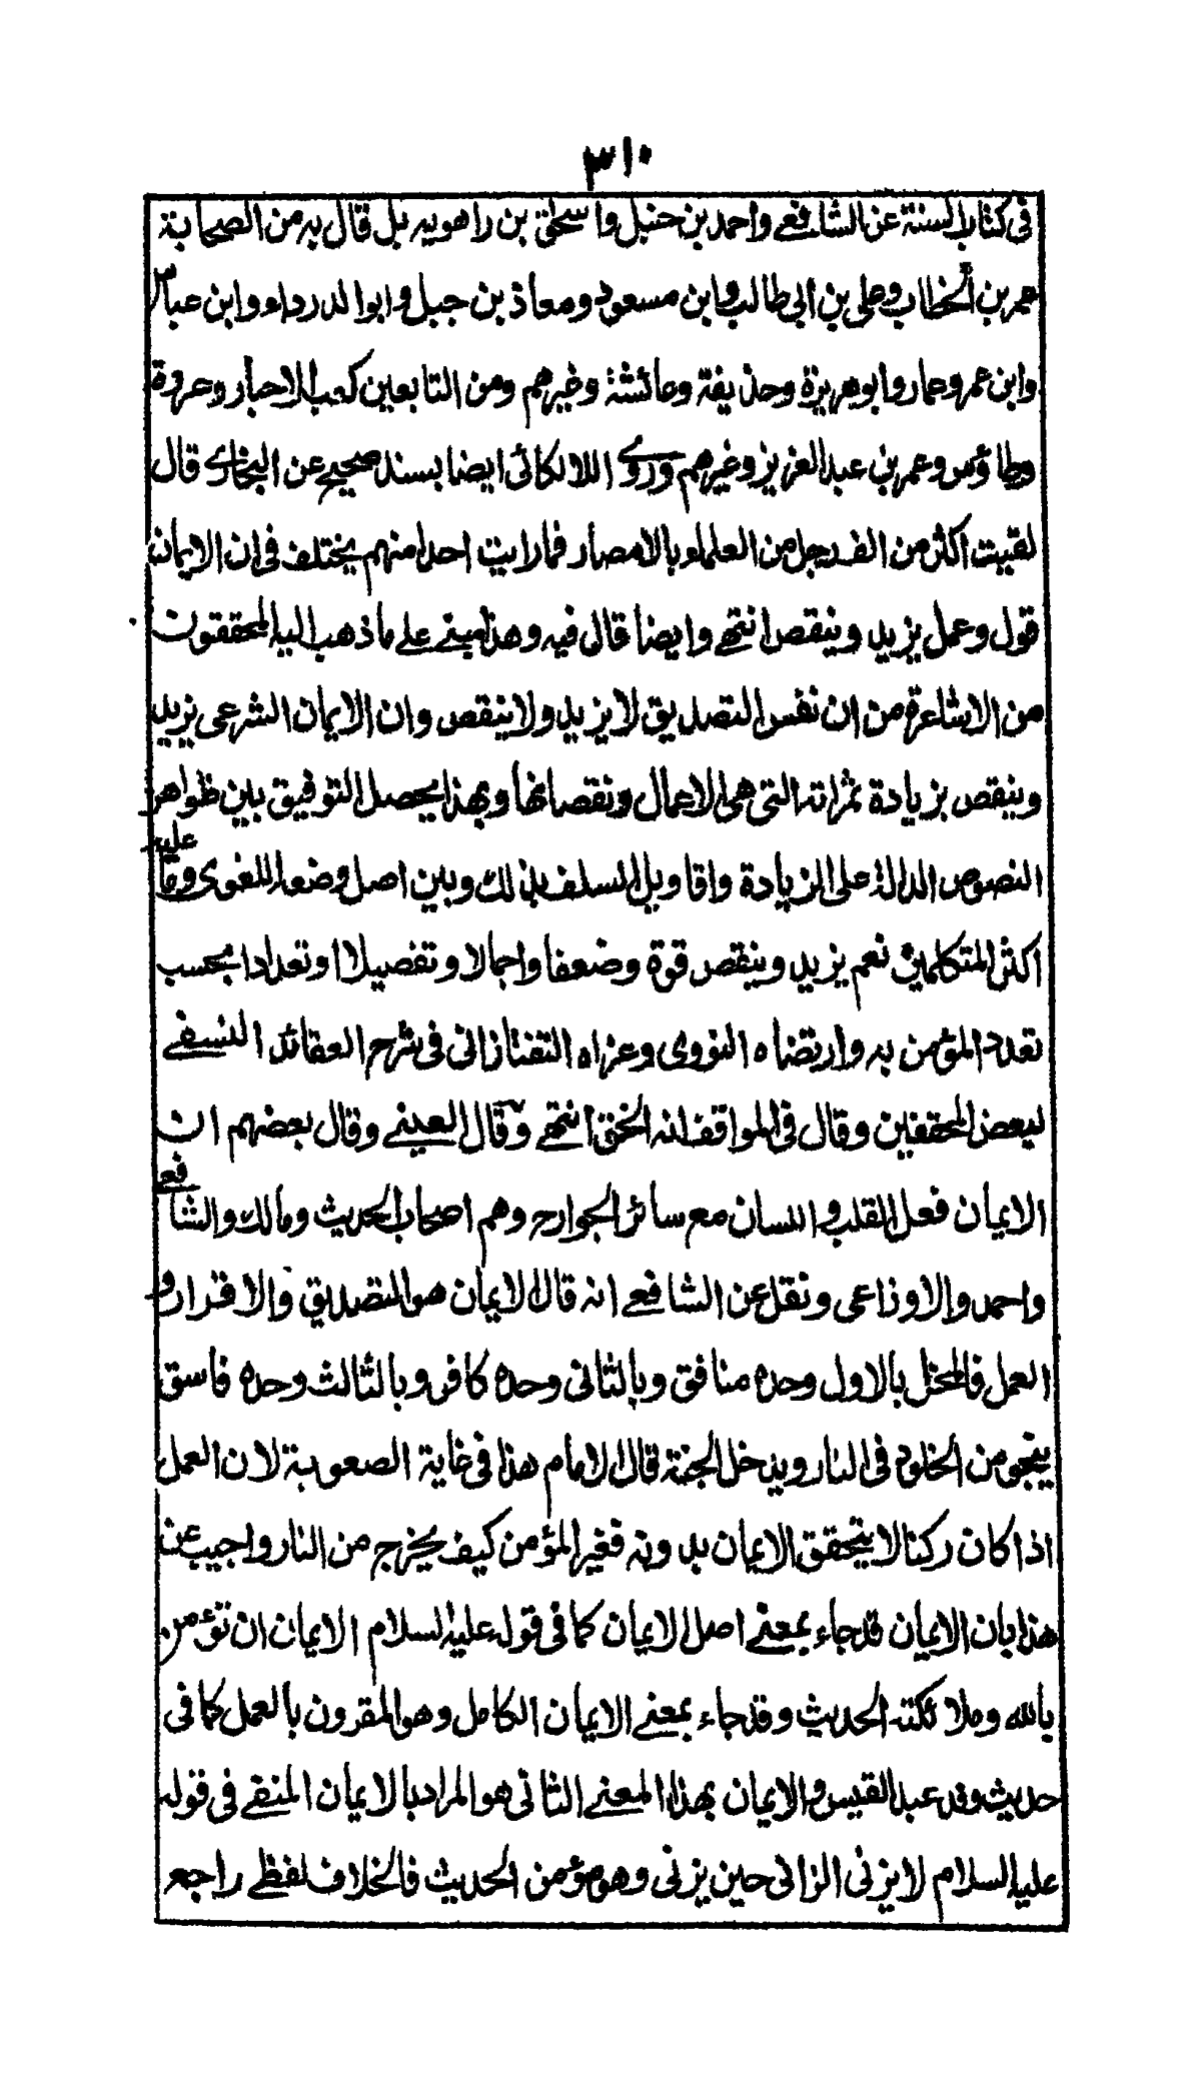 ٣١٠
في كتاب السنة عن الشافعے واحمد بن حنبل واسحٰق بن راهويه بل قال به من الصحابة
عمر بن الخطاب وعلى بن ابى طالب وابن مسعود ومعاذ بن جبل وابو الدرداء وابن عباس
وابن عمر وعمار وابو هريرة وحذيفة وعائشة وغيرهم ومن التابعين كعب الاحبار وعروة
وطاؤس وعمر بن عبد العزيز وغيرهم وروے اللالكائى ايضا بسند صحيح عن البخارى قال
لقيت اكثر من الف رجل من العلماء بالامصار فما رايت احدا منهم يختلف فى ان الايمان
قول وعمل يزيد وينقص انتهے وايضا قال فيه وهذا مبنے علے ما ذهب اليه المحققون
من الاشاعرة من ان نفس التصديق لا يزيد ولا ينقص وان الايمان الشرعى يزيد
وينقص بزيادة ثمراته التى هى الاعمال ونقصانها وبهذا يحصل التوفيق بين ظواهر
النصوص الدالة على الزيادة واقاويل السلف بذلك وبين اصل وضعه اللغوى وما عليه
اكثر المتكلمين نعم يزيد وينقص قوة وضعفا واجمالا وتفصيلا او تعدادا بحسب
تعدد المؤمن به وارتضاه النووى وعزاه التفتازانى فى شرح العقائد النسفے
لبعض المحققين وقال فى المواقف انه الحق انتهے وقال العينے وقال بعضهم ان
الايمان فعل القلب واللسان مع سائر الجوارح وهم اصحاب الحديث ومالك والشافعے
واحمد والاوزاعى ونقل عن الشافعے انه قال الايمان هو التصديق والاقرار و
العمل فالمخل بالاول وحده منافق وبالثانى وحده كافر وبالثالث وحده فاسق
ينجو من الخلود فى النار ويدخل الجنة قال الامام هذا فى غاية الصعوبة لان العمل
اذا كان ركنا لا يتحقق الايمان بدونه فغير المؤمن كيف يخرج من النار واجيب عن
هذا بان الايمان قد جاء بمعنے اصل الايمان كما فى قوله عليه السلام الايمان ان تؤمن
بالله وملائكته الحديث وقد جاء بمعنے الايمان الكامل وهو المقرون بالعمل كما فى
حديث وفد عبد القيس والايمان بهذا المعنے الثانى هو المراد بالايمان المنفے فى قوله
عليه السلام لا يزنى الزانى حين يزنى وهو مؤمن الحديث فالخلاف لفظے راجع